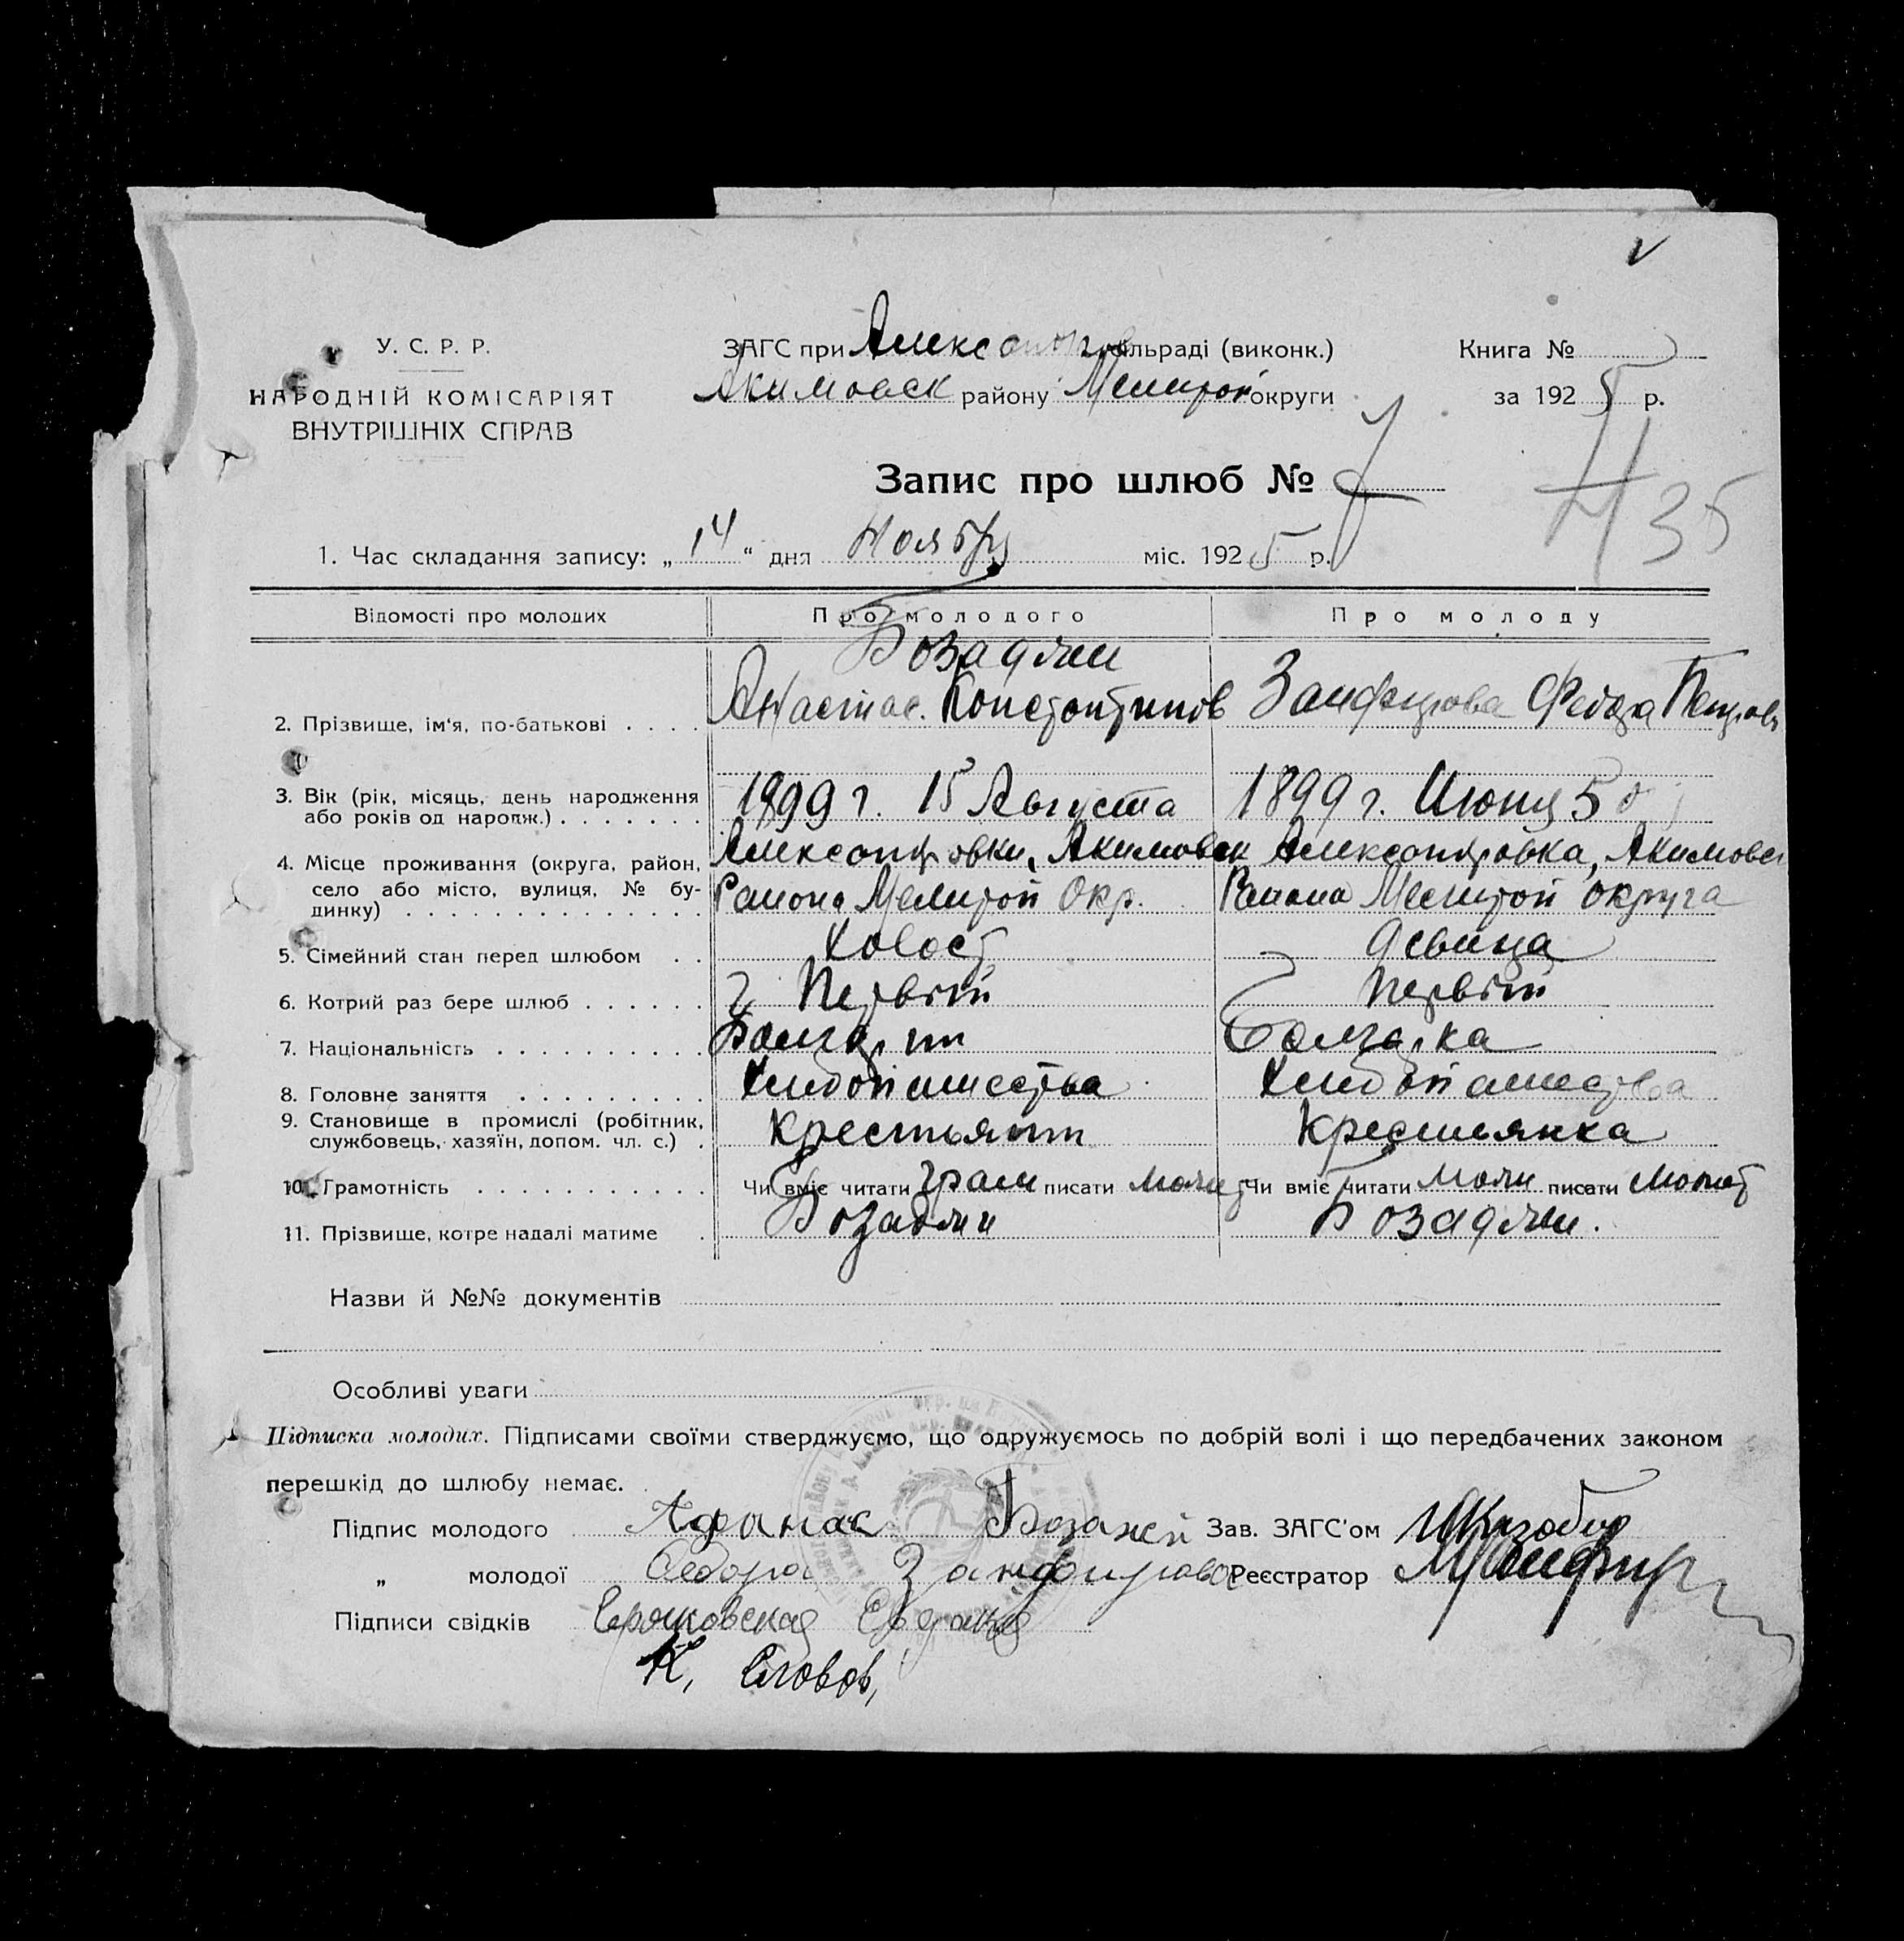 У. С. Р. Р.
НАРОДНІЙ КОМІСАРІЯТ
ВНУТРІШНІХ СПРАВ
ЗАГС при Александров сільраді (виконк.)
Акимовск району Мелитоп округи
Книга №
за 1925 р.
Запис про шлюб № 7
Н 35
1. Час складання запису: „14“ дня Ноября міс. 1925 р.
Відомості про молодих Про молодого Про молоду
2. Прізвище, ім‘я, по-батькові Бозаджи
Анастас. Константинов Занфирова Федора Петров
3. Вік (рік, місяць, день народження або років од народж.) 1899 г. 15 Августа 1899 г. Июня 5
4. Місце проживання (округа, район, село або місто, вулиця, № будинку) Александровки, Акимовск Района Мелитоп Окр. Александровка, Акимовск Района Мелитоп округа
5. Сімейний стан перед шлюбом Холост девица
6. Котрий раз бере шлюб Первый Первый
7. Національність Болгарин Болгарка
8. Головне заняття Хлебопашества Хлебопашества
9. Становище в промислі (робітник, службовець, хазяїн, допом. чл. с.) Крестьянин Крестьянка
10. Грамотність Чи вміє читати писати Чи вміє читати писати
11. Прізвище, котре надалі матиме Бозаджи Бозаджи.
Назви й №№ документів
Особливі уваги
Підписка молодих. Підписами своїми стверджуємо, що одружуємось по добрій волі і що передбачених законом
перешкід до шлюбу немає.
Підпис молодого Афанас Бозажи Зав. ЗАГС'ом
„ молодої Федора Занфирова Реєстратор
Підписи свідків
К.